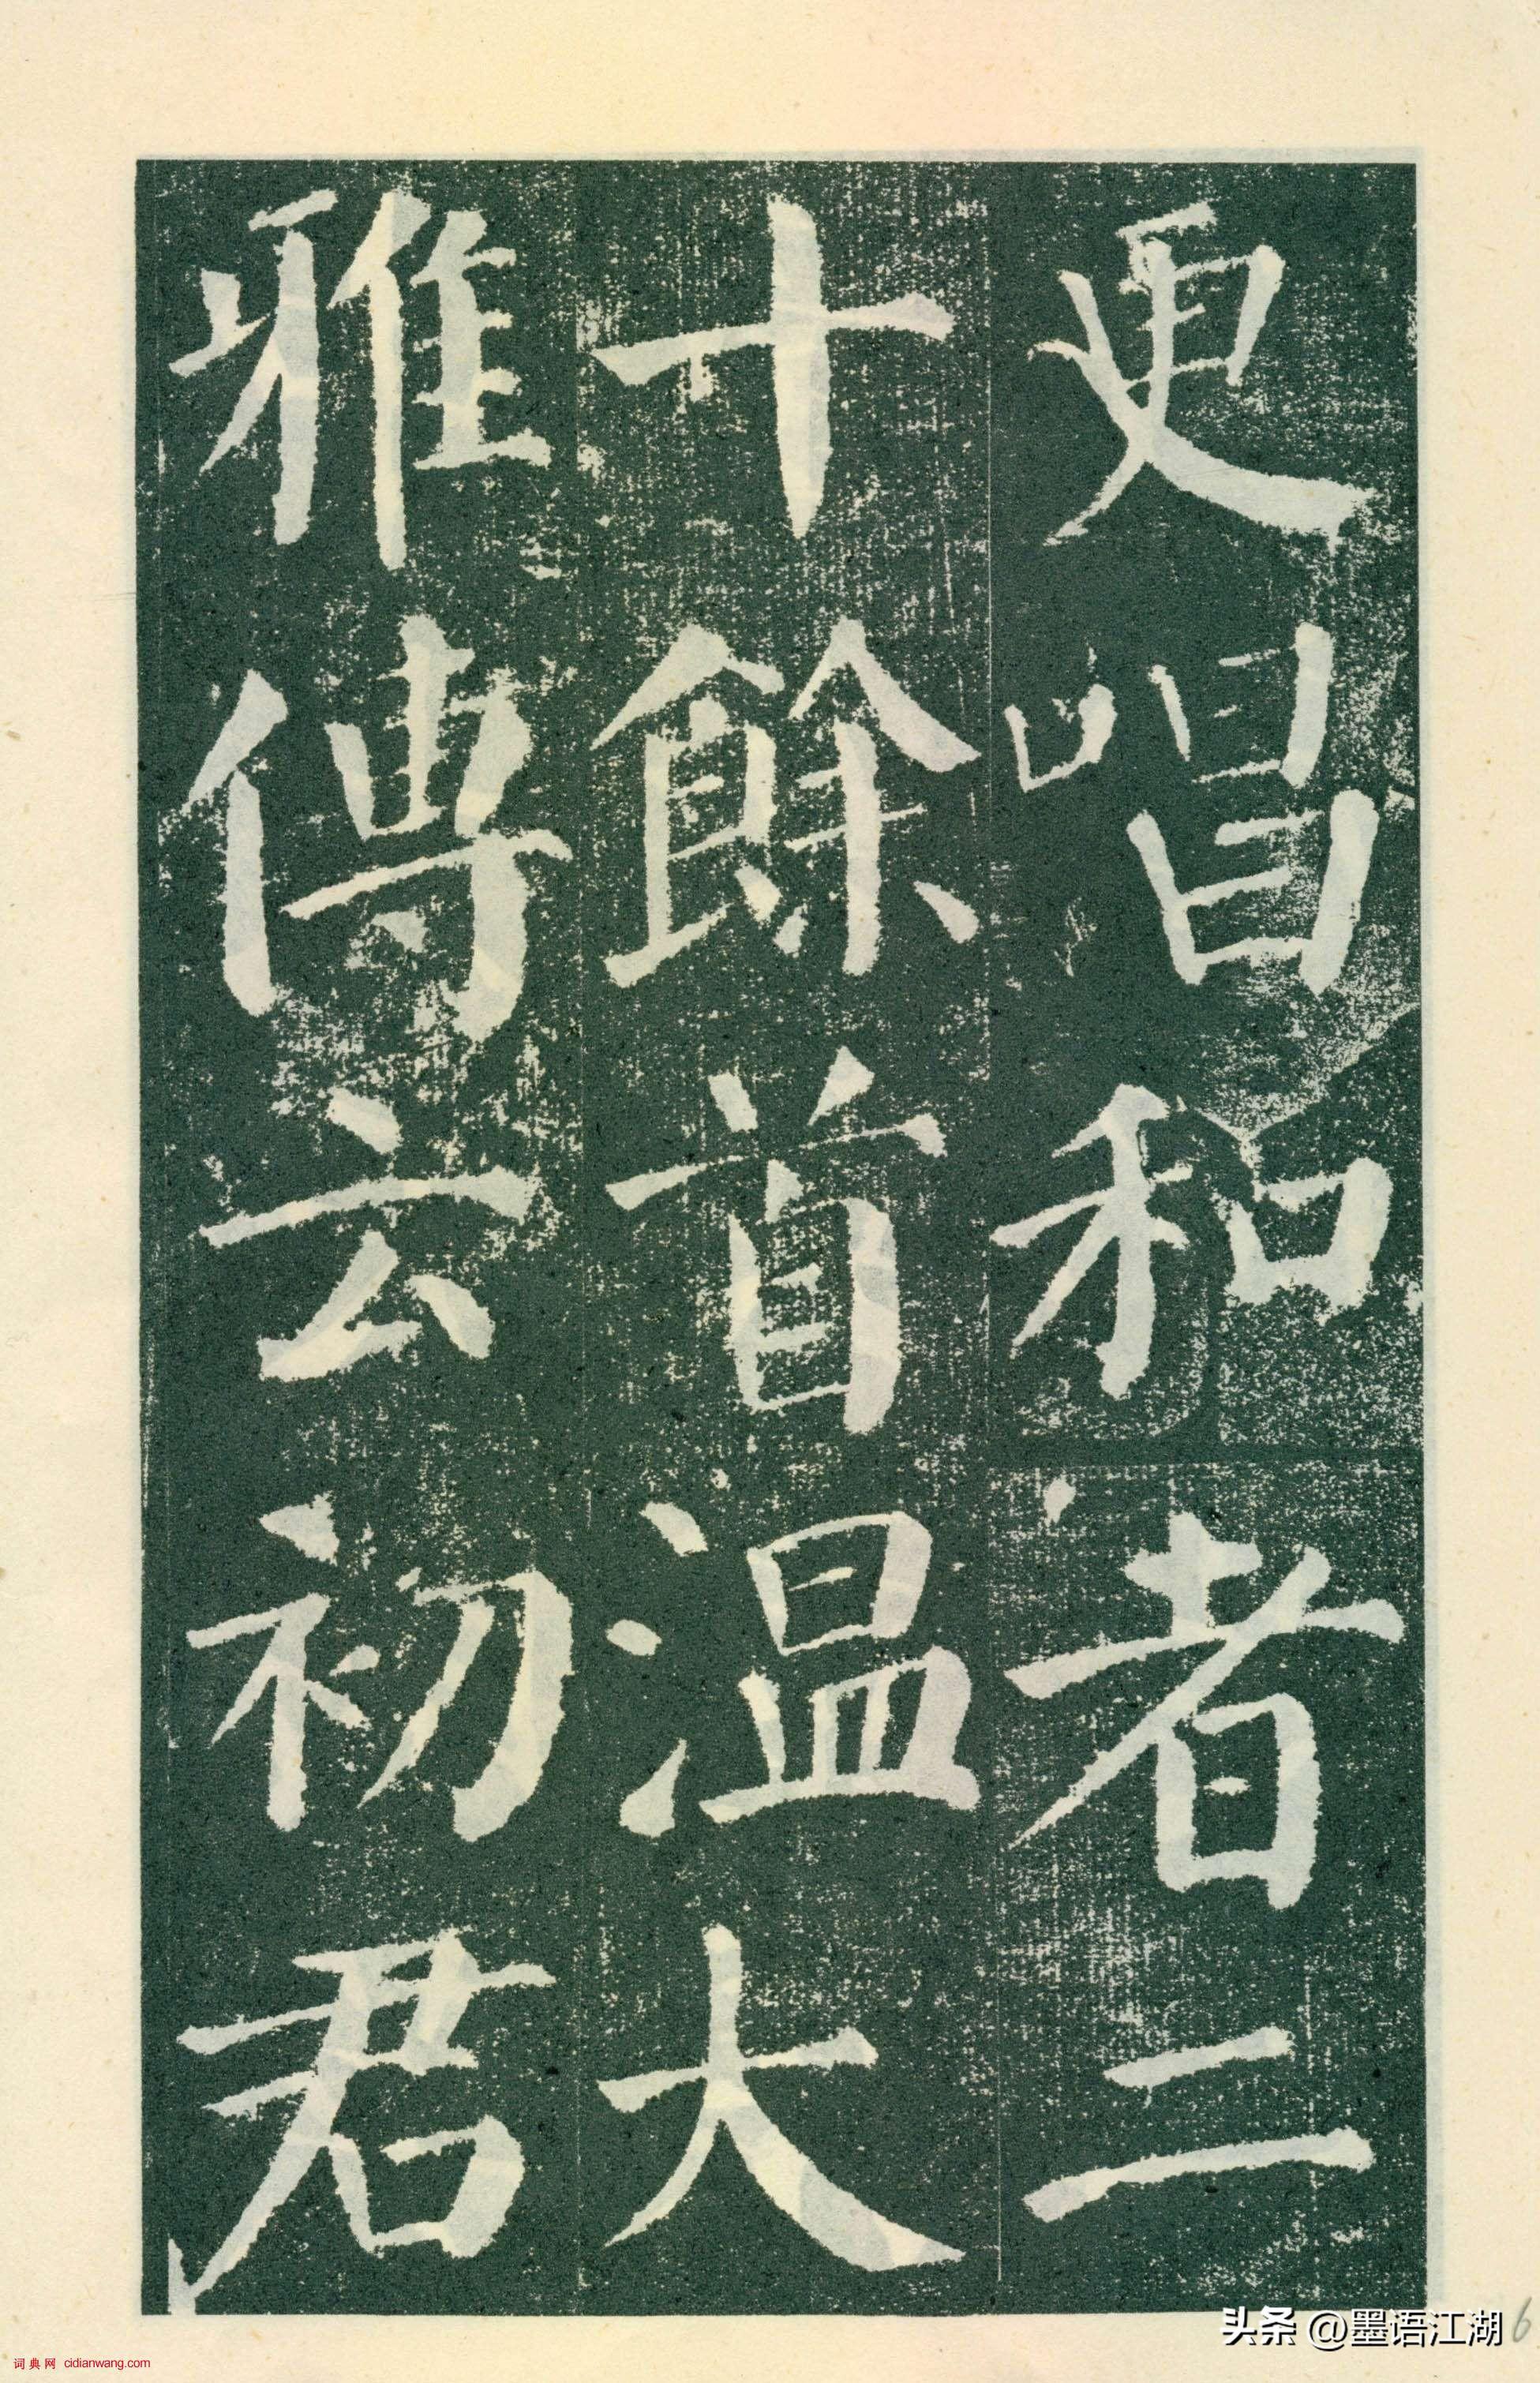 更唱和者二
十餘首温大
雅傳云初君
头条 @墨语江湖
6
词典网 cidianwang.com